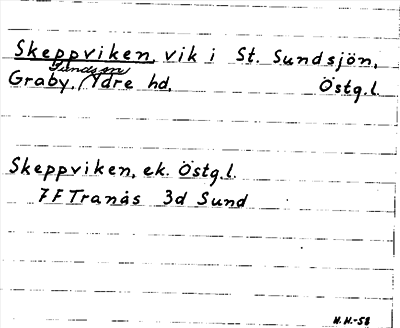 Skeppviken, vik i St. Sundsjön,
Sunds sn
Graby, Ydre hd, Östg.l.
Skeppviken, ek. Östg.l.
7F Tranås 3d Sund
N.N.-58